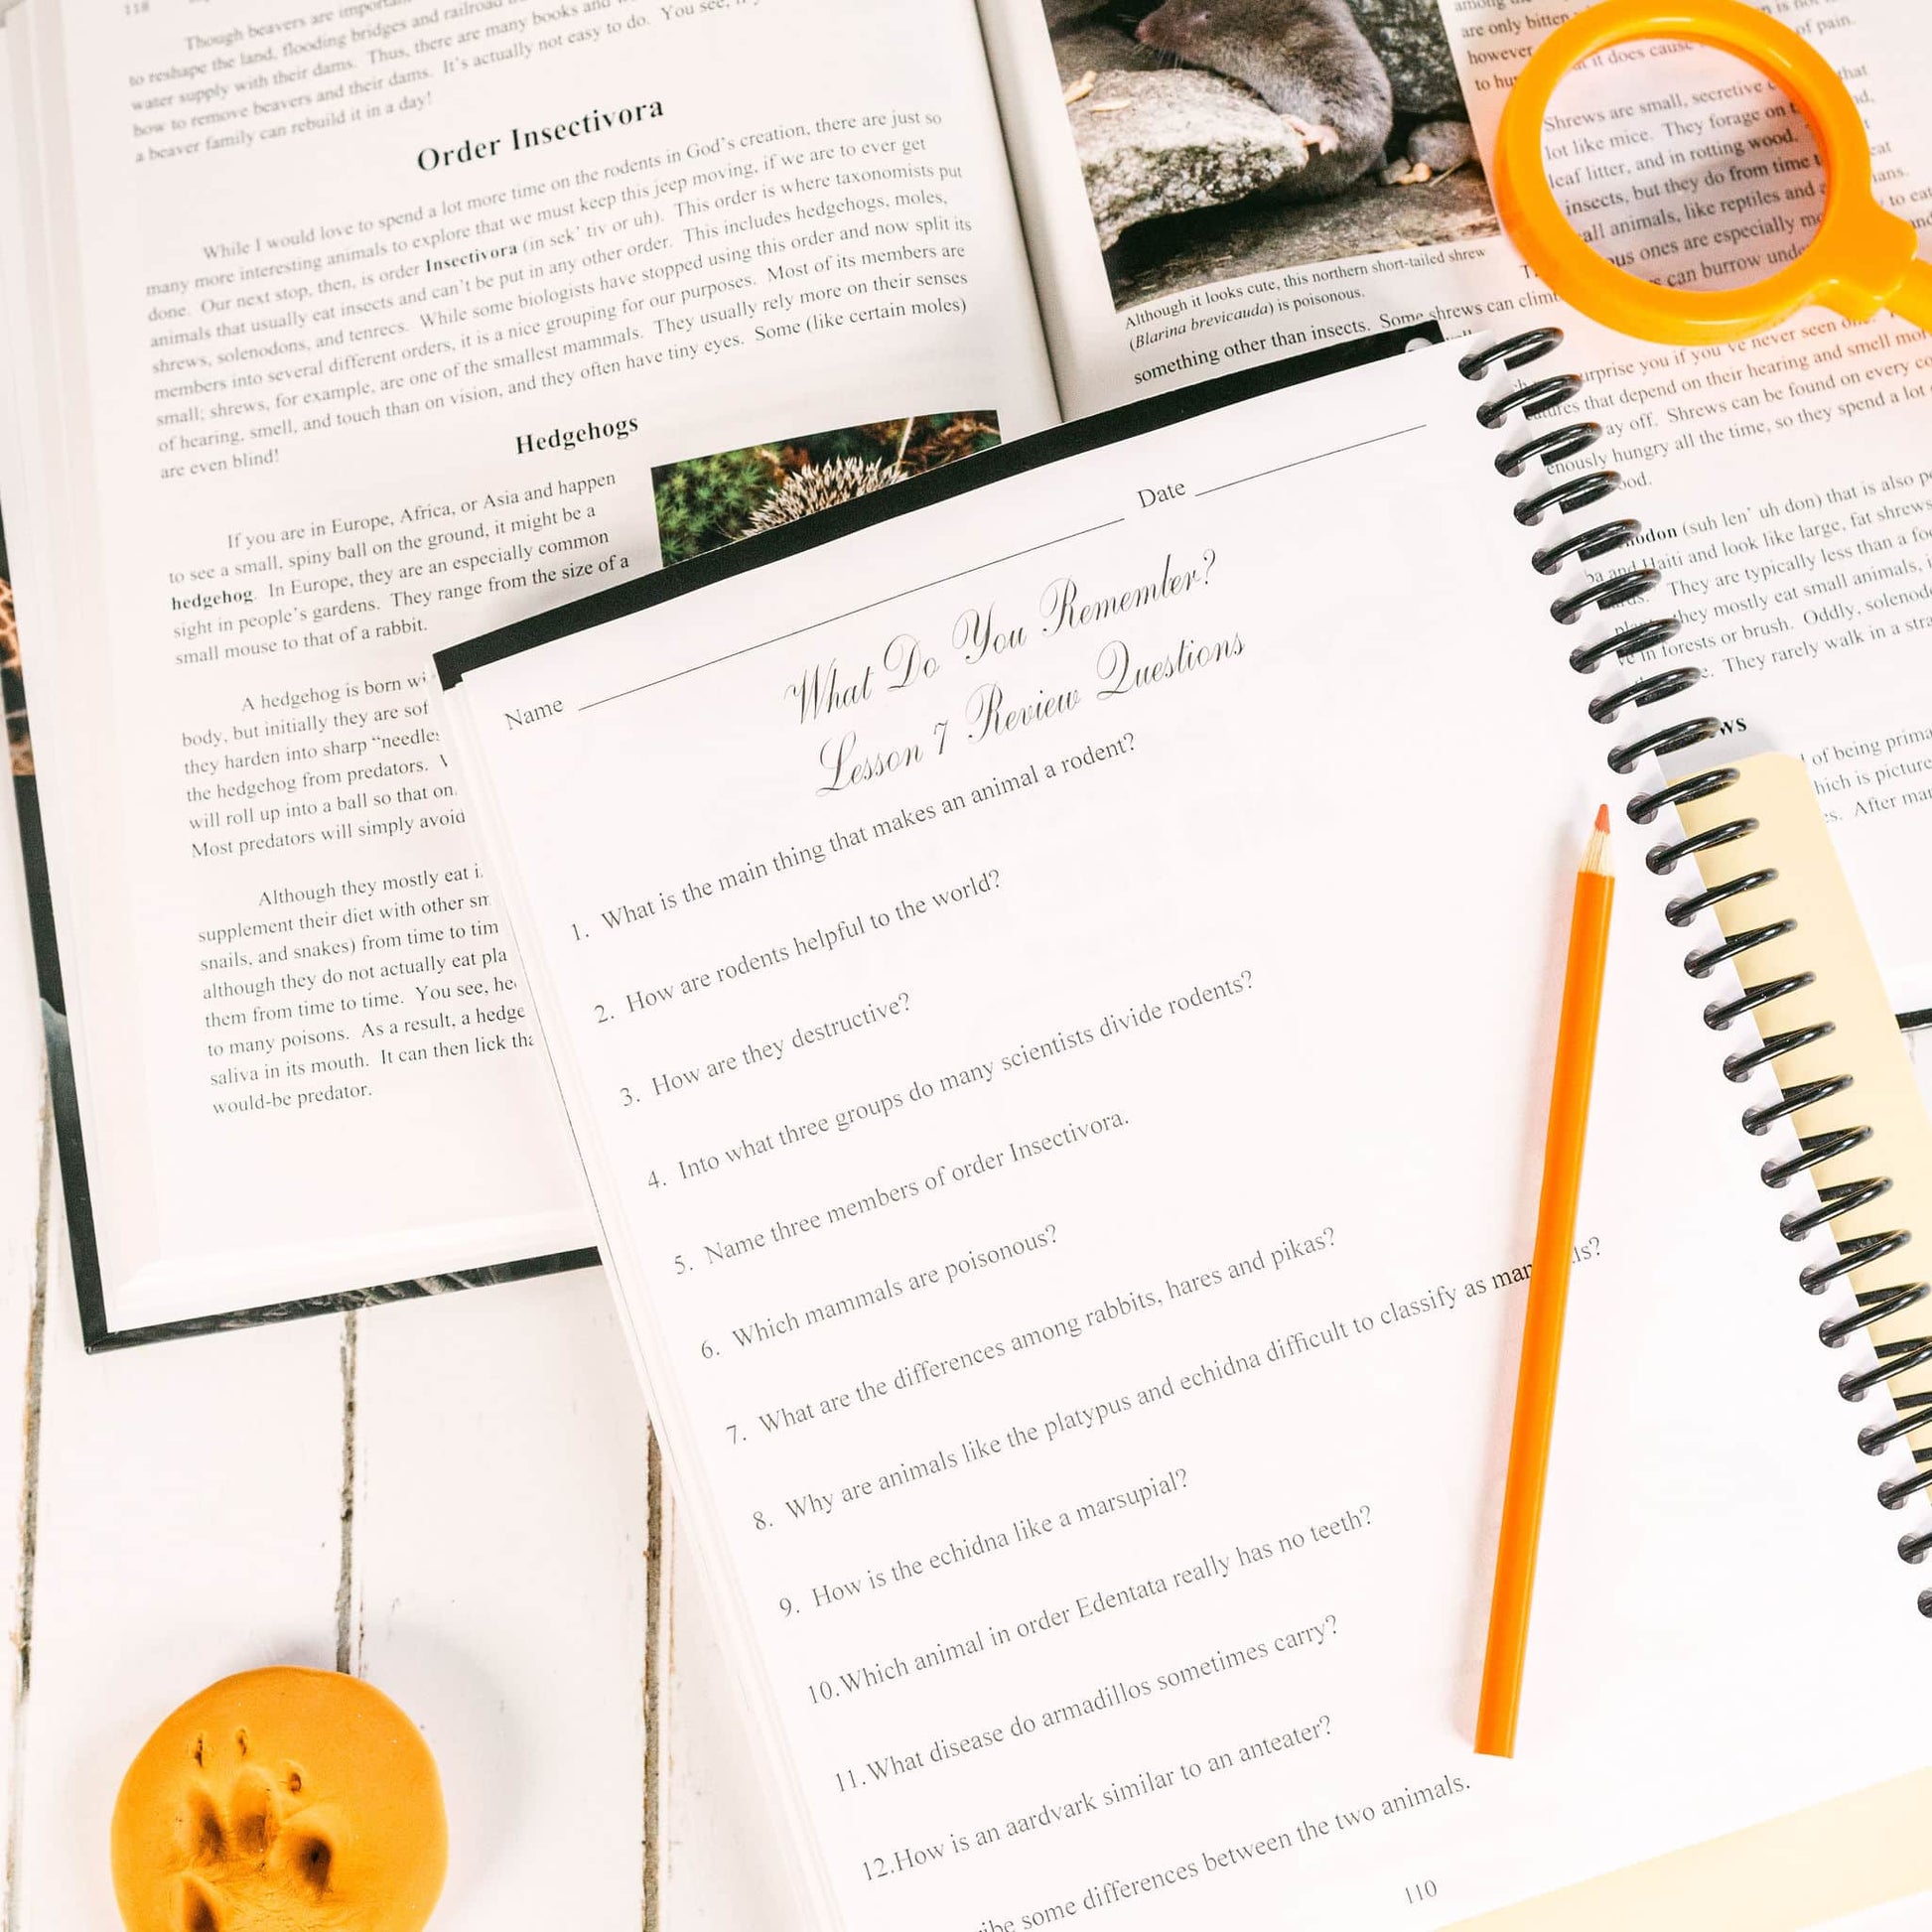 118
Though beavers are important
to reshape the land, flooding bridges and railroad
water supply with their dams. Thus, there are many books and
how to remove beavers and their dams. It's actually not easy to do. You see,
a beaver family can rebuild it in a day!
Order Insectivora
While I would love to spend a lot more time on the rodents in God's creation, there are just so
many more interesting animals to explore that we must keep this jeep moving, if we are to ever get
done. Our next stop, then, is order Insectivora (in sek' tiv or uh). This order is where taxonomists put
animals that usually eat insects and can't be put in any other order. This includes hedgehogs, moles,
shrews, solenodons, and tenrecs. While some biologists have stopped using this order and now split its
members into several different orders, it is a nice grouping for our purposes. Most of its members are
small; shrews, for example, are one of the smallest mammals. They usually rely more on their senses
of hearing, smell, and touch than on vision, and they often have tiny eyes. Some (like certain moles)
are even blind!
Hedgehogs
If you are in Europe, Africa, or Asia and happen
to see a small, spiny ball on the ground, it might be a
hedgehog. In Europe, they are an especially common
sight in people's gardens. They range from the size of a
small mouse to that of a rabbit.
A hedgehog is born wi
body, but initially they are sof
they harden into sharp "needles
the hedgehog from predators.
will roll up into a ball so that on
Most predators will simply avoid
Although they mostly eat i
supplement their diet with other sm
snails, and snakes) from time to tim
although they do not actually eat pla
them from time to time. You see, he
to many poisons. As a result, a hedge
saliva in its mouth. It can then lick tha
would-be predator.
Although it looks cute, this northern short-tailed shrew
(Blarina brevicauda) is poisonous.
something other than insects. Some shrews can climb
among
are only bitten
however it does cause of pain.
to hu
Shrews are small, secretive that
lot like mice. They forage on
leaf litter, and in rotting wood.
insects, but they do from time t eat
all animals, like reptiles and
ous ones are especially mo to eat
can burrow unde and
surprise you if you've never seen
atures that depend on their hearing and smell mor
ay off. Shrews can be found on every co
enously hungry all the time, so they spend a lot
ood.
enodon (suh len' uh don) that is also p
ba and Haiti and look like large, fat shrews
They are typically less than a foo
they mostly eat small animals, i
ve in forests or brush. Oddly, solenod
They rarely walk in a stra
ws
of being prima
hich is picture
es. After mar
Name Date
What Do You Remember?
Lesson 7 Review Questions
1. What is the main thing that makes an animal a rodent?
2. How are rodents helpful to the world?
3. How are they destructive?
4. Into what three groups do many scientists divide rodents?
5. Name three members of order Insectivora.
6. Which mammals are poisonous?
7. What are the differences among rabbits, hares and pikas?
8. Why are animals like the platypus and echidna difficult to classify as mam ls?
9. How is the echidna like a marsupial?
10. Which animal in order Edentata really has no teeth?
11. What disease do armadillos sometimes carry?
12. How is an aardvark similar to an anteater?
ibe some differences between the two animals.
110